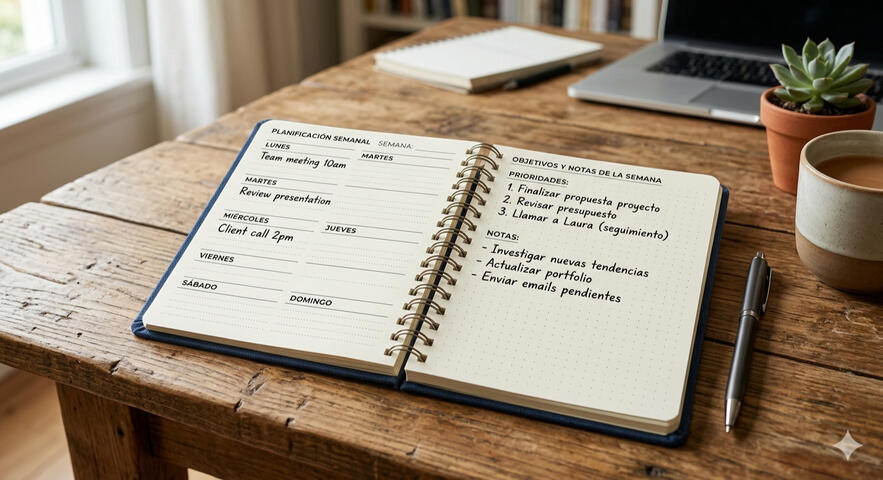 PLANIFICACIÓN SEMANAL SEMANA:
LUNES
Team meeting 10am
MARTES
MARTES
Review presentation
MIÉRCOLES
Client call 2pm
JUEVES
VIERNES
SÁBADO
DOMINGO
OBJETIVOS Y NOTAS DE LA SEMANA
PRIORIDADES:
1. Finalizar propuesta proyecto
2. Revisar presupuesto
3. Llamar a Laura (seguimiento)
NOTAS:
- Investigar nuevas tendencias
- Actualizar portfolio
- Enviar emails pendientes